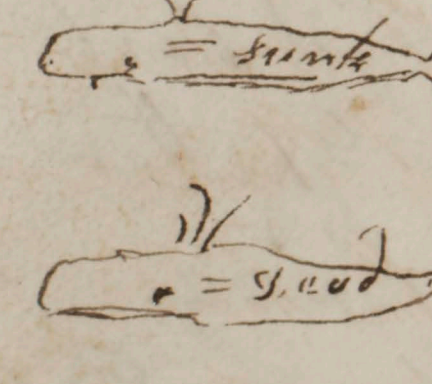 = sunk
= Dead